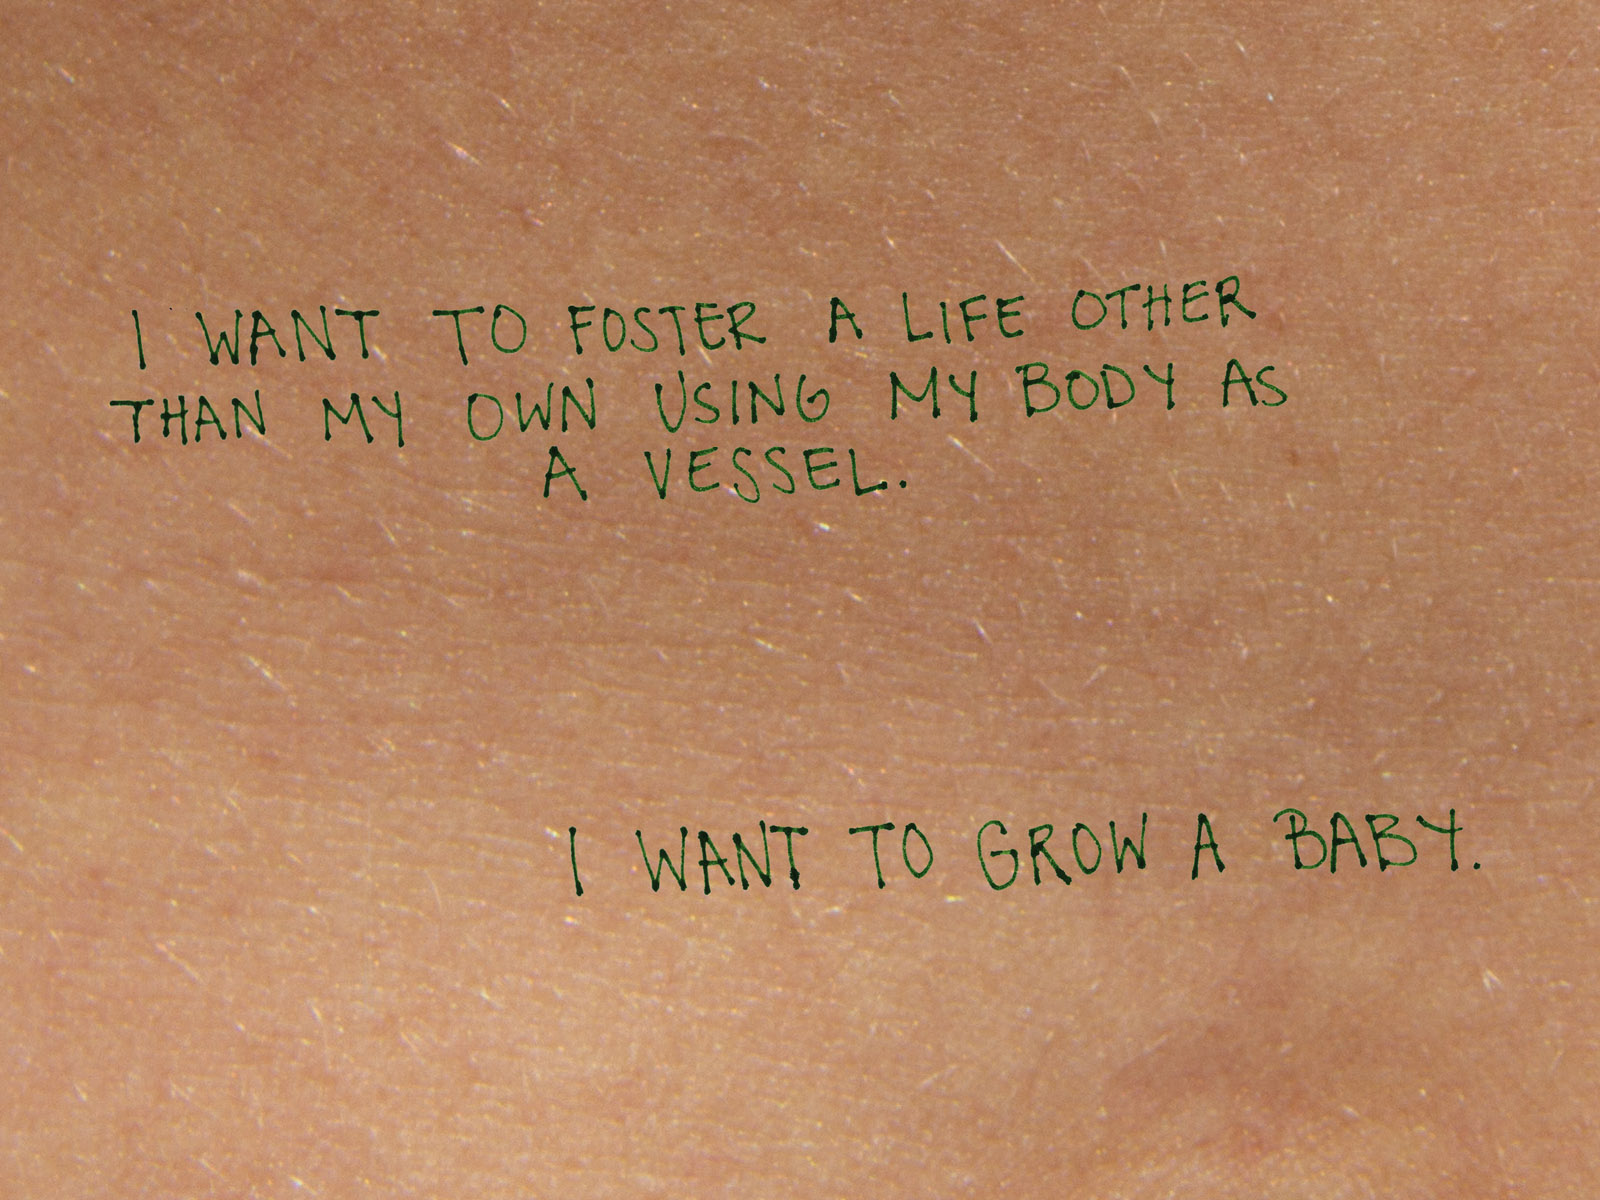 I WANT TO FOSTER A LIFE OTHER
THAN MY OWN USING MY BODY AS
A VESSEL.
I WANT TO GROW A BABY.